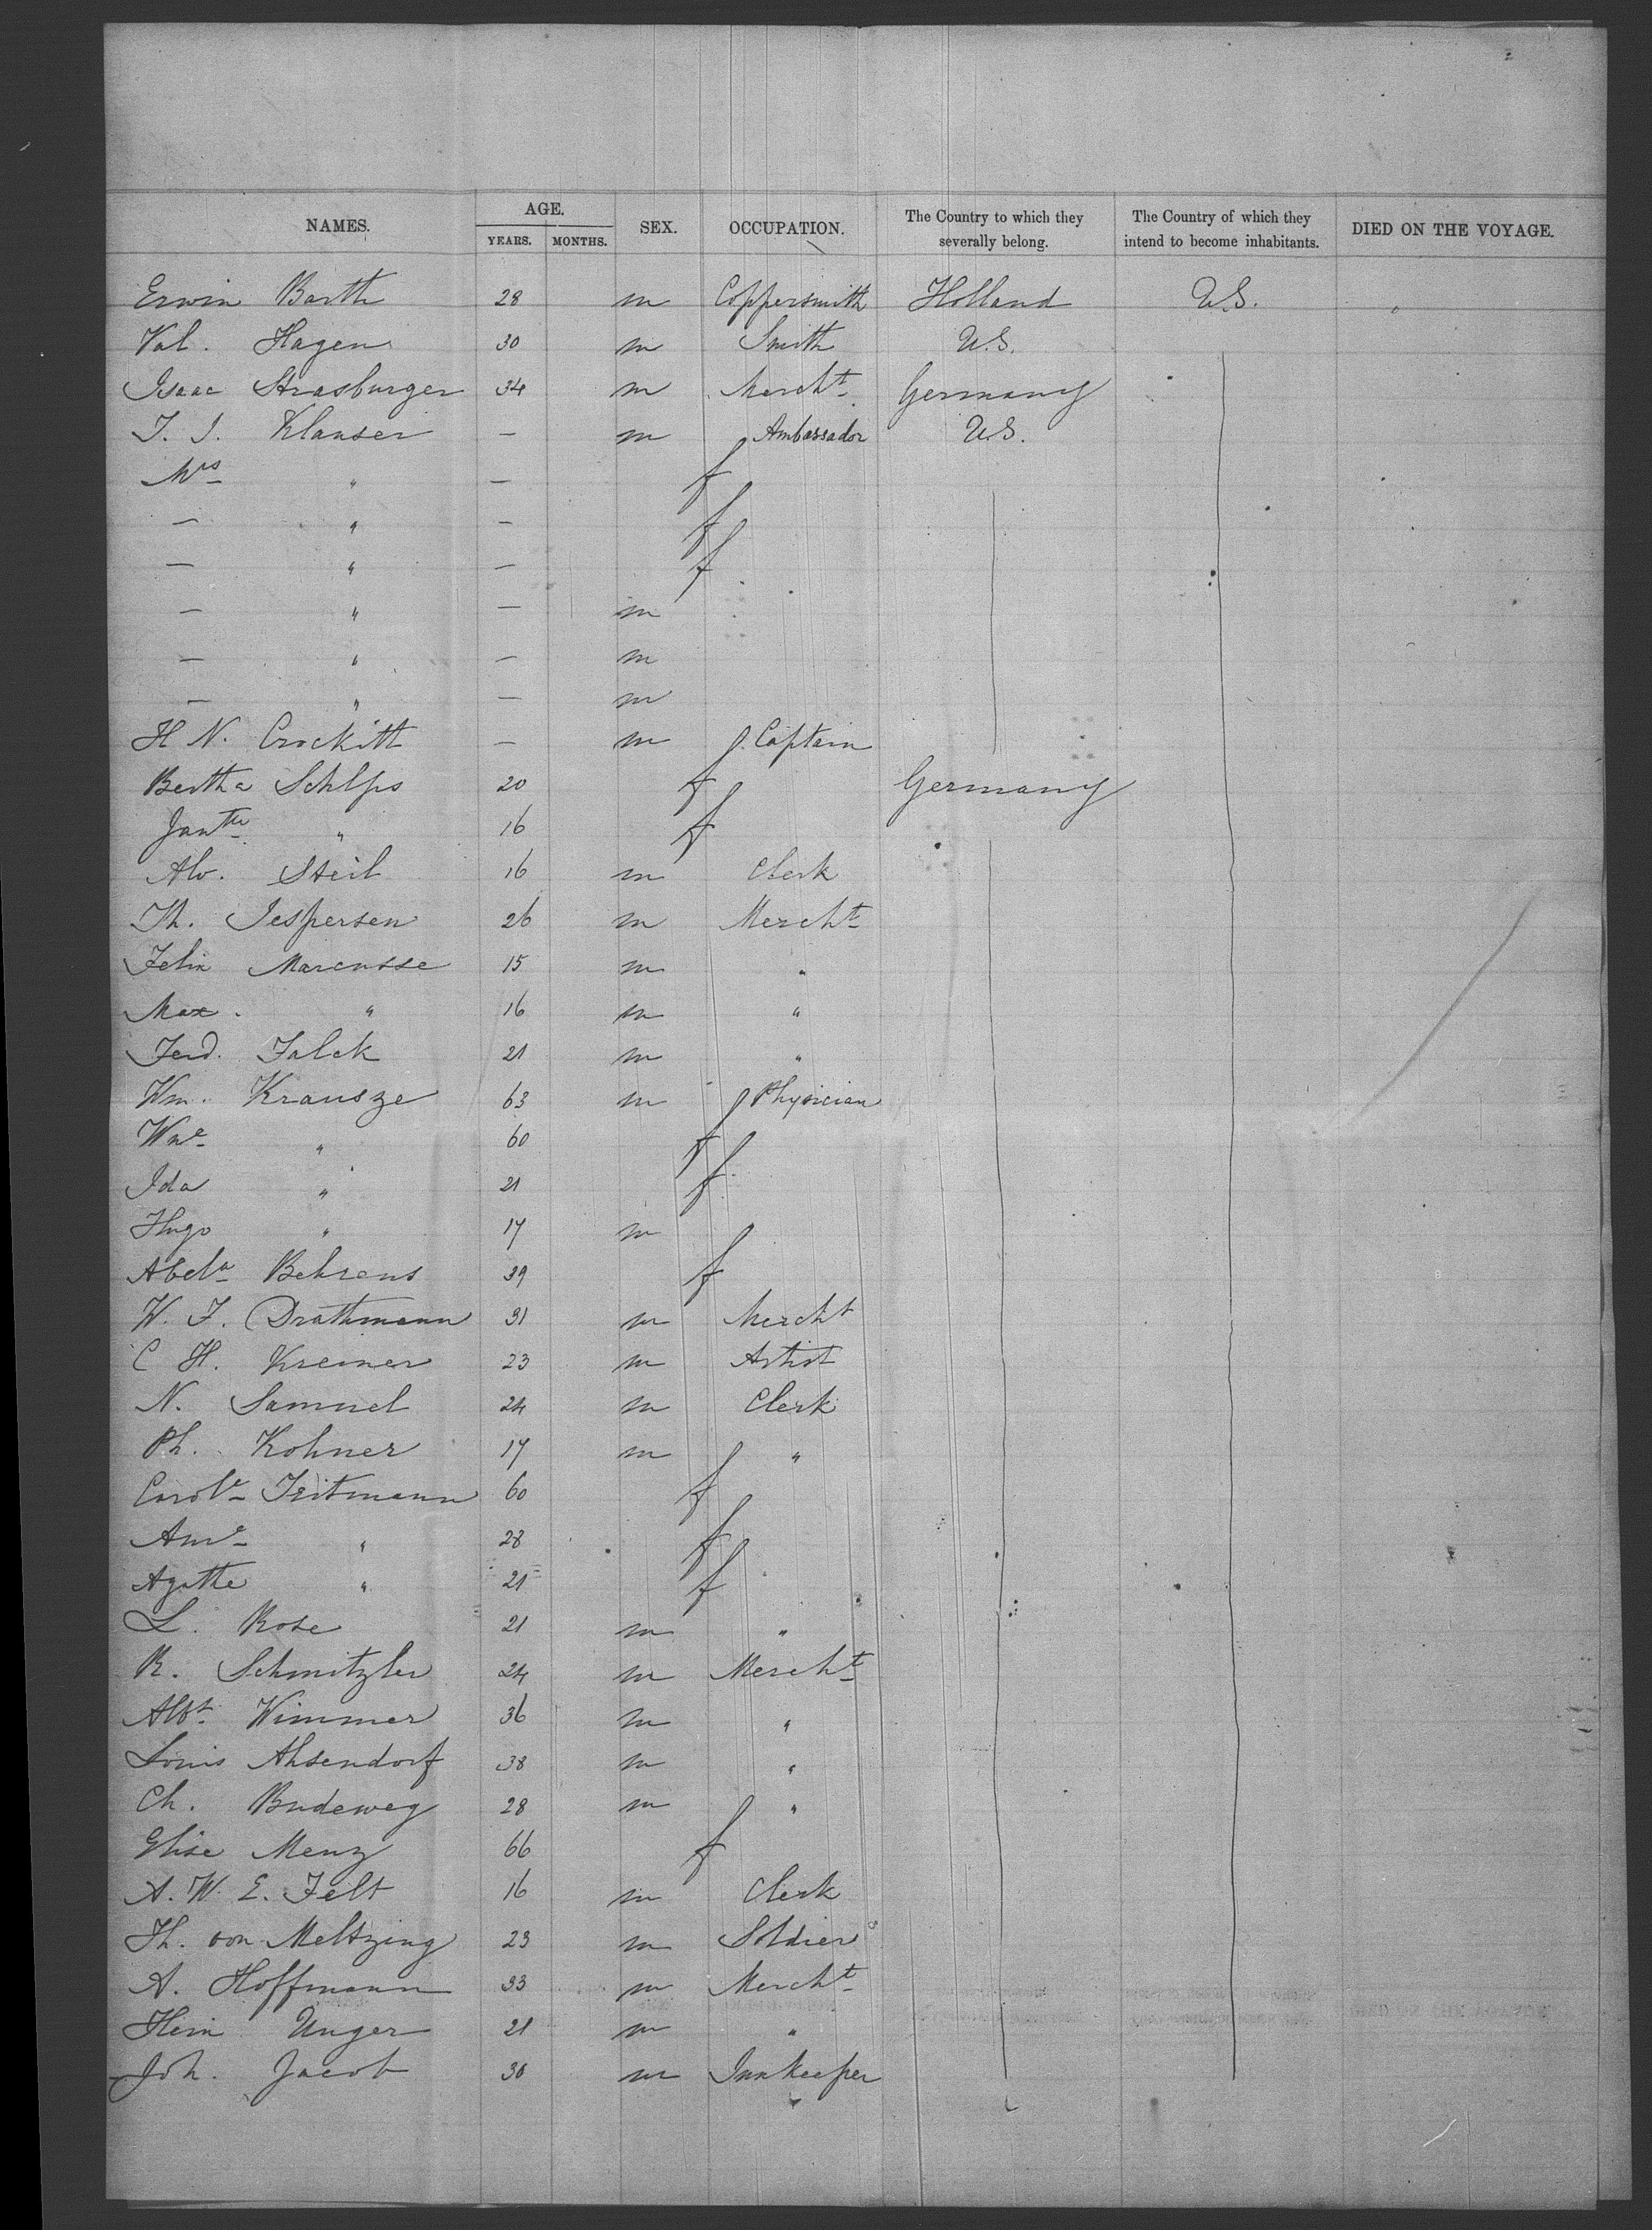 NAMES. AGE. YEARS. MONTHS. SEX. OCCUPATION. The Country to which they severally belong. The Country of which they intend to become inhabitants. DIED ON THE VOYAGE.
Erwin Barth 28 m Coppersmith Holland U.S.
Val. Hagen 30 m Smith U.S.
Isaac Strasburger 34 m Mercht Germany
J. J. Klauser — m Ambassador U.S.
Mrs " — f
— " — f
— " — f
— " — m
— " — m
— " — m
H N. Crockitt — m Captain
Bertha 20 f Germany
" 16 f
Alv. Steil 16 m Clerk
Th. Jespersen 26 m Mercht
Felix Marcusse 15 m "
Max " 16 m "
Ferd. Falck 21 m "
Wm. Krausze 63 m Physician
Wne " 60 f
Ida " 21 f
Hugo " 17 m
Behrens 39 f
W. F. Drathmann 31 m Mercht
C H. Kremer 23 m Artist
N. Samuel 24 m Clerk
Ph. Kohner 17 m "
Carole 60 f
" 28 f
Agathe " 21 f
L. Rose 21 m "
R. Schmitzler 24 m Mercht
Albt Wimmer 36 m "
Louis Ahsendorf 38 m "
Ch. Budeweg 28 m "
Elise Menz 66 f
A. W. E. Felt 16 m Clerk
Th. von Meltzing 23 m Soldier
A. Hoffmann 33 m Mercht
Hein Unger 21 m "
Joh. Jacob 30 m Innkeeper